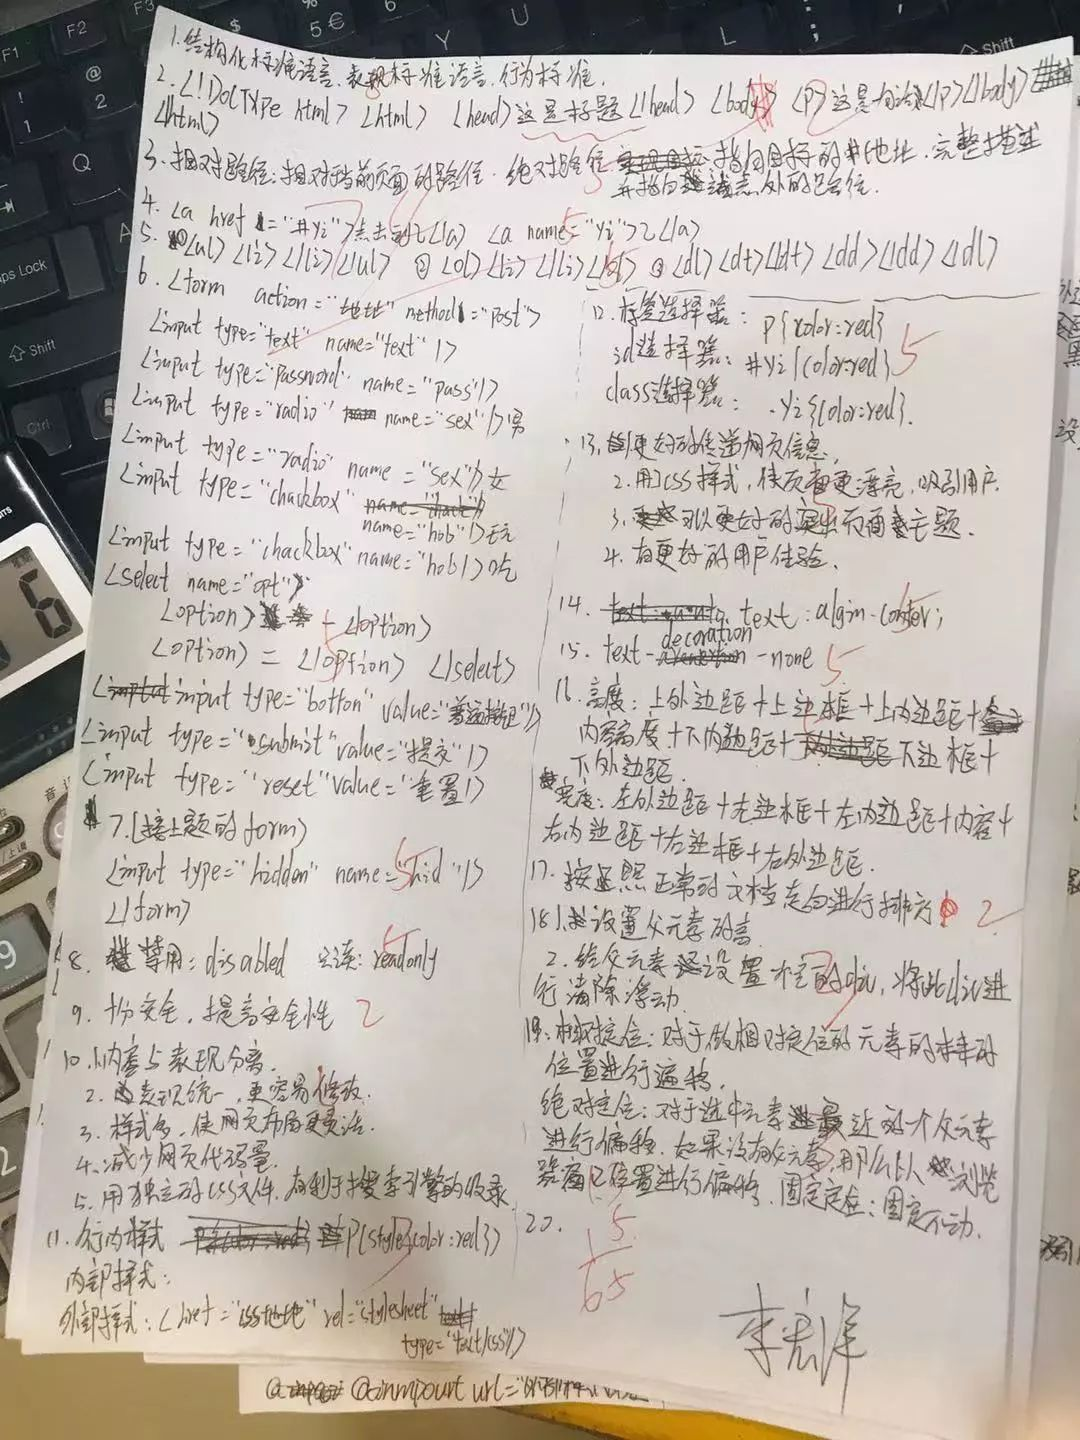 1.结构化标准语言,表现标准语言,行为标准.
2.<!DocType html> <html> <head>这是标题</head> <body> <p>这是句话</p></body>
</html>
3.相对路径:相对于当前页面的路径.绝对路径 指向目标的地址,完整描述
并指向 处的路径.
4.<a href ="#yi">点击到乙</a> <a name="yi">乙</a>
5.①<ul><li></li></ul> ②<ol><li></li></ol> ③<dl><dt></dt><dd></dd></dl>
6.<form action="地址" method="post">
<input type="text" name="text"/>
<input type="password" name="pass"/>
<input type="radio" name="sex"/>男
<input type="radio" name="sex"/>女
<input type="chackbox"
name="hob"/>玩
<input type="chackbox" name="hob"/>吃
<select name="opt">
<option> 一 </option>
<option>二 </option> </select>
<input type="botton" value="普通按钮"/>
<input type="submit" value="提交"/>
<input type="reset" value="重置"/>
7.(接上题的form)
<input type="hidden" name="hid"/>
</form>
8. 禁用:disabled 只读:readonly
9. 十分安全,提高安全性 2
10.1.内容与表现分离.
2.表现统一,更容易修改.
3.样式多,使网页布局更灵活.
4.减少网页代码量.
5.用独立的css文件,有利于搜索引擎的收录
11.行内样式 P{style=color:red}
内部样式:
外部样式:<href="css地址" rel="stylesheet"
type="text/css"/>
12.标签选择器: p{color:red}
id选择器: #yi{color:red} 5
class选择器: .yi{color:red}.
13.1.更好的传递网页信息,
2.用css样式,使页面更漂亮,吸引用户
3.可以更好的突出页面主题.
4.有更好的用户体验.
14. text:algin-conter;
decoration
15. text- -none 5
16.高度:上外边距+上边框+上内边距+
内容高度+下内边距+ 下边框+
下外边距.
宽度:左外边距+左边框+左内边距+内容+
右内边距+右边框+右外边距.
17.按照正常的文档走向进行排序 2
18.1.设置父元素的高
2.给父元素设置 空的div,将此div进
行清除浮动
19.相对定位:对于做相对定位的元素的本来的
位置进行偏移.
绝对定位:对于选中元素最近的一个父元素
进行偏移.如果没有父元素,那么以浏览
器窗口位置进行偏移.固定定位:固定不动.
20.
5
65
@inmpourt url="